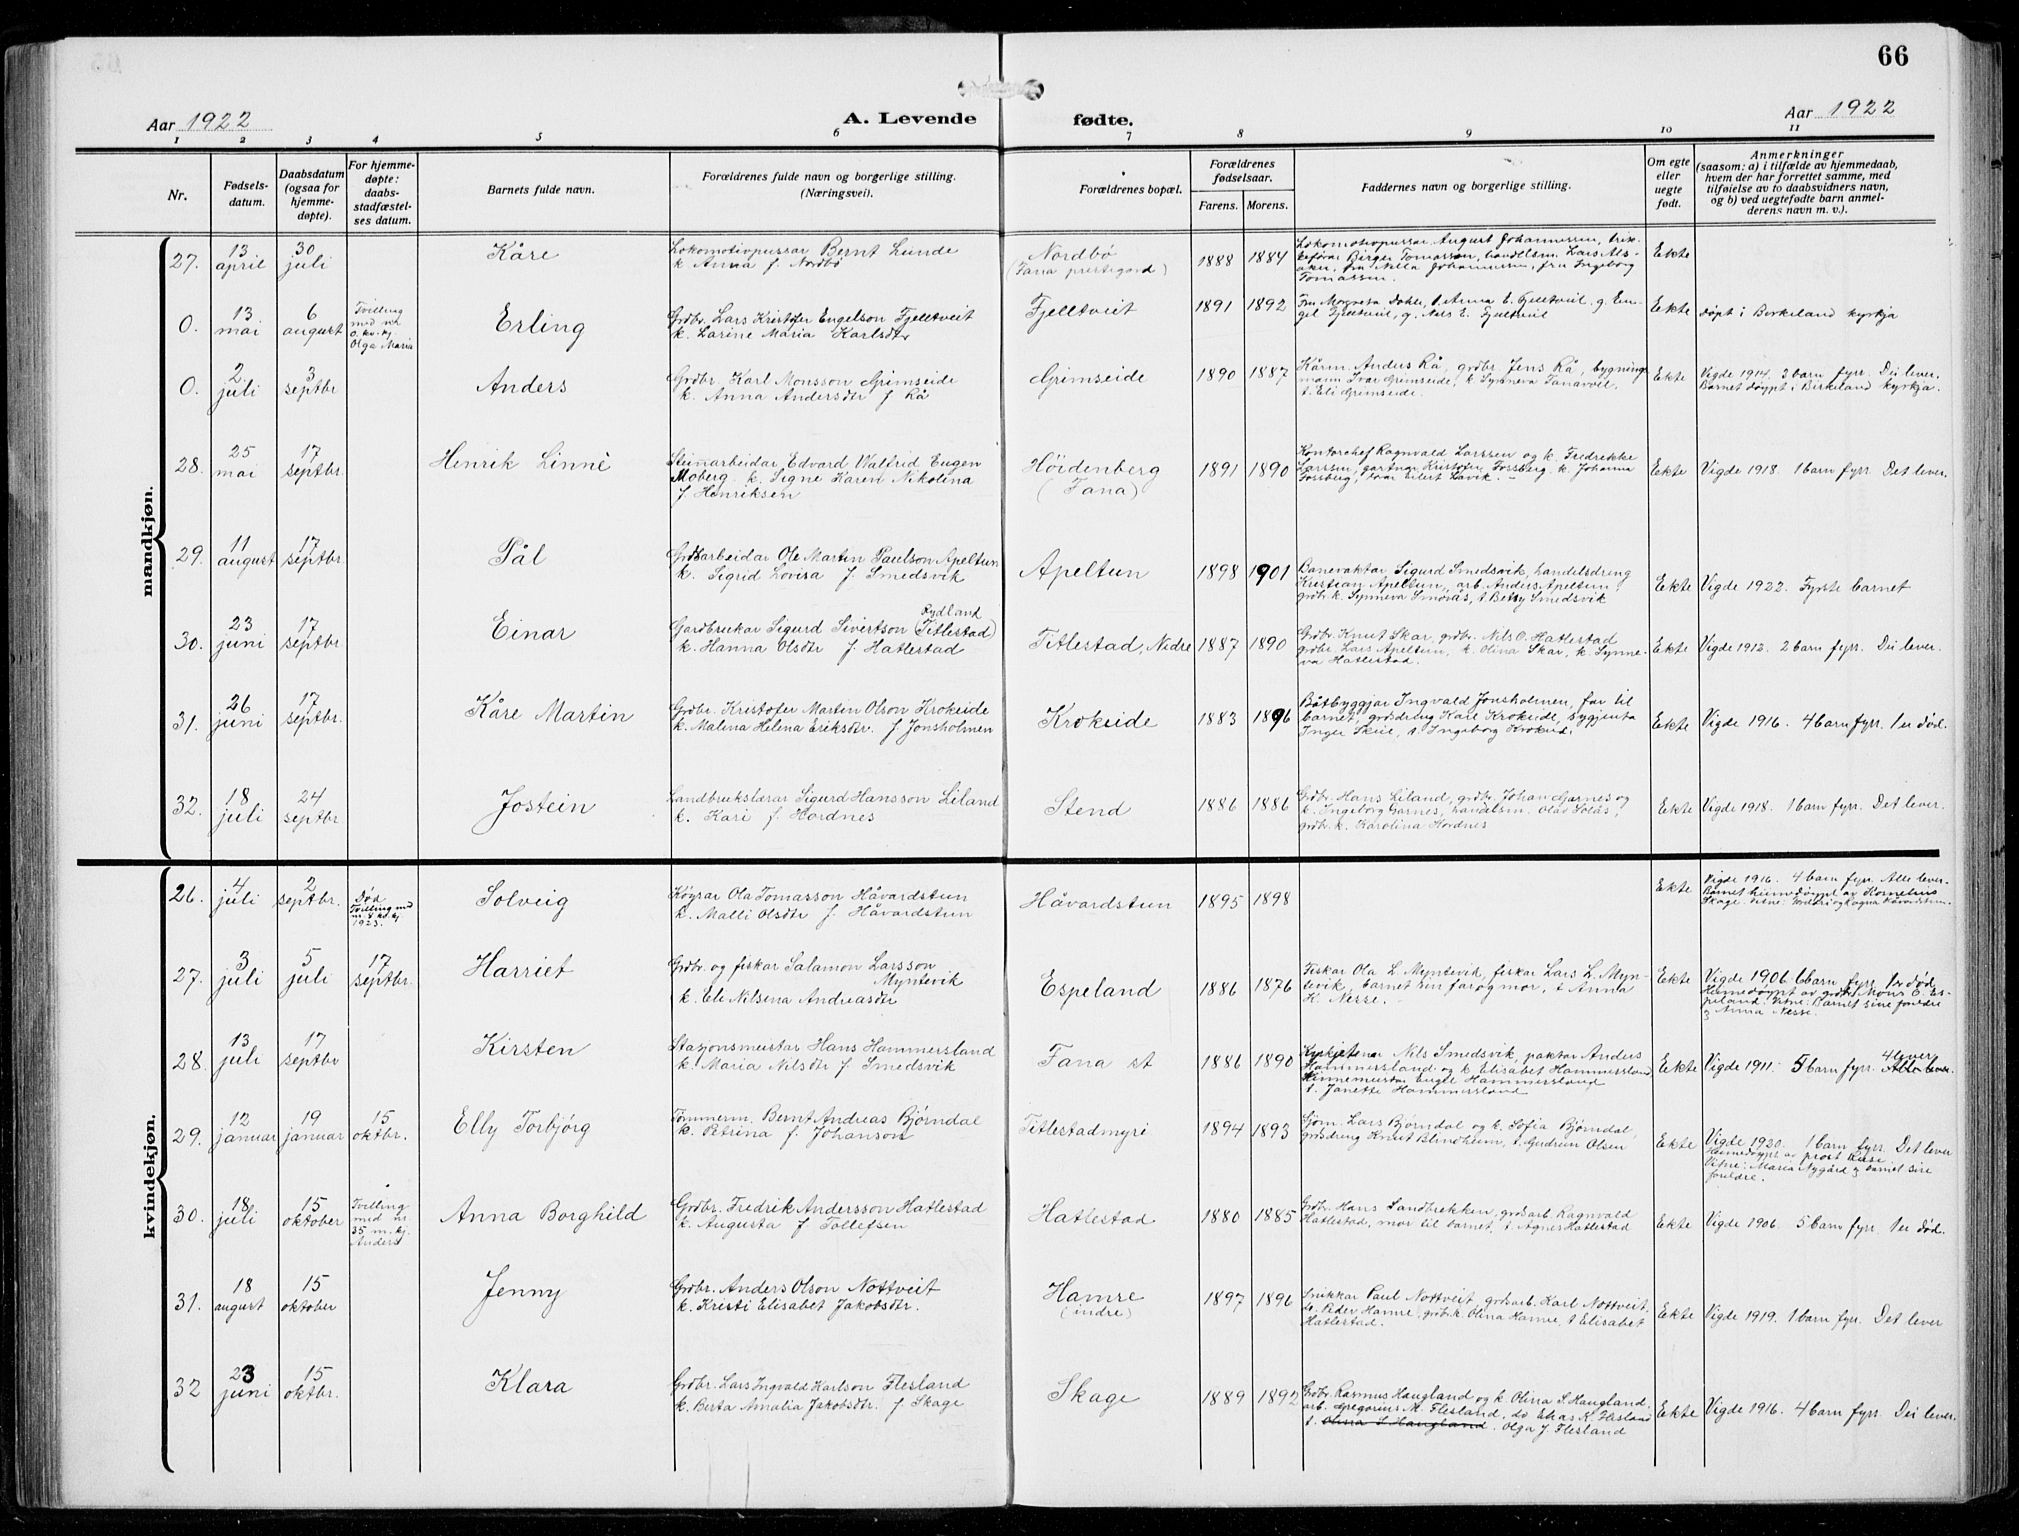 66
Aar 1922
A. Levende fødte.
Aar 1922
1 2 3 4 5 6 7 8 9 10 11
Nr.
Fødsels-
datum.
Daabsdatum
(ogsaa for
hjemme-
døpte).
For hjemme-
døpte:
daabs-
stadfæstel-
ses datum.
Barnets fulde navn.
Forældrenes fulde navn og borgerlige stilling.
(Næringsvei).
Forældrenes bopæl.
Forældrenes
fødselsaar.
Farens. Morens.
Faddernes navn og borgerlige stilling.
Om egte
eller
uegte
født.
Anmerkninger
(saasom: a) i tilfælde av hjemmedaab,
hvem der har forrettet samme, med
tilføielse av to daabsvidners navn,
og b) ved uegtefødte barn anmel-
derens navn m. v.).
mandkjøn.
27.
13
april
30
juli
Kåre
Lokomotivpussar Bernt Lunde
k. Anna f. Nordbø
Nordbø
(Fana prestegard)
1888 1884
Lokomotivpussar August Johannessen,
Birger Tomassen, handelsm. Lars Als-
aker, fru Nella Johannessen, fru Ingeborg
Tomassen.
Ekte
0.
13
mai
6
august
Tvilling
med nr.
0. kv. kj.
Olga Maria
Erling
Grdbr. Lars Kristofer Engelson Fjelltveit
k. Larine Maria Karlsdtr
Fjelltveit
1891 1892
Fru Dahle, t. Anna E. Fjelltveit, g. En-
gel Fjelltveit, g. Nils E. Fjelltveit
Ekte
døpt i Birkeland kyrkja
0.
2
juli
3
septbr
Anders
Grdbr. Karl Monsson Grimseide
k. Anna Andersdtr f. Rå
Grimseide
1890 1887
Kårm. Anders Rå, grdbr. Jens Rå, bygnings-
mann Ivar Grimseide, k. Synneva Fanavoll,
t. Eli Grimseide.
Ekte
Vigde 1914. 3 barn fyrr. Dei lever.
Barnet døypt i Birkeland kyrkja.
28.
25
mai
17
septbr.
Henrik Linné
Steinarbeidar Edvard Walfrid Eugen
Moberg k. Signe Karen Nikolina
f. Henriksen
Høidenberg
(Fana)
1891 1890
Kontorchef Ragnvald Larssen og k. Fredrikke
Larssen, gartnar Kristofer Fossberg, k. Johanna
Fossberg, Ivar Eilert Lavik.
Ekte
Vigde 1918. 1 barn fyrr. Det lever.
29.
11
august
17
septbr.
Pål
Grdsarbeidar Ole Martin Paulson Apeltun
k. Sigrid Lovisa f. Smedsvik
Apeltun
1898 1901
Banevaktar Sigurd Smedsvik, handelsdreng
Kristian Apeltun, arb. Anders Apeltun,
grdbr. k. Synneva Smørås, t. Betsy Smedsvik
Ekte
Vigde 1922. Fyrste barnet
30.
23
juni
17
septbr.
Einar
Rydland
Gardbrukar Sigurd Sivertson (Titlestad)
k. Hanna Olsdtr f. Hatlestad
Titlestad, Nedre
1887 1890
Grdbr. Knut Skar, grdbr. Nils O. Hatlestad
grdbr. Lars Apeltun, k. Olina Skar, k. Synne-
va Hatlestad.
Ekte
Vigde 1912. 2 barn fyrr. Dei lever.
31.
26
juni
17
septbr.
Kåre Martin
Grdbr. Kristofer Martin Olson Krokeide
k. Malena Helena Eriksdtr. f. Jonsholmen
Krokeide
1883 1896
Båtbyggjar Ingvald Jonsholmen, far til
barnet, grdsdreng Karl Krokeide, sygjenta
Inger Skeie, t. Ingeborg Krokeide.
Ekte
Vigde 1916. 4 barn fyrr. 1 er død.
32.
18
juli
24
septbr
Jostein
Landbrukslærar Sigurd Hansson Liland
k. Kari f. Hordnes
Stend
1886 1886
Grdbr. Hans Liland, grdbr. Johan Garnes og
k. Ingeborg Garnes, handelsm. Olav Solås,
grdbr. k. Karolina Hordnes
Ekte
Vigde 1918. 1 barn fyrr. Det lever.
kvindekjøn.
26.
4
juli
2
septbr.
Død
Tvilling med
1923.
Solveig
Køyrar Ola Tomasson Håvardstun
k. Malli Olsdtr f. Håvardstun
Håvardstun
1895 1898
Ekte
Vigde 1916. 4 barn fyrr. Alle lever.
Barnet heimedøypt av Kornelius
Skage. Vitne: foreldri og Ragna Håvardstun.
27.
3
juli
5
juli
17
septbr.
Harriet
Grdbr. og fiskar Salamon Larsson
Myntevik
k. Eli Nilsena Andreasdtr
Espeland
1886 1876
Fiskar Ola L. Myntevik, fiskar Lars L. Myn-
tevik, barnet sin far og mor, t. Anna
K. Nesse.
Ekte
Vigde 1906. 6 barn fyrr. 1 er død.
Heimedøypt av grdbr. Mons E. Es-
peland. Vitne: Barnet sine foreldre
og Anna Nesse.
28.
13
juli
17
septbr
Kirsten
Stasjonsmeistar Hans Hammersland
k. Maria Nilsdtr f. Smedsvik
Fana st
1886 1890
Kyrkjetenar Nils Smedsvik, paktar Anders
Hammersland og k. Elisabet Hammersland
Engle Hammersland
t. Janette Hammersland
Ekte
Vigde 1911. 5 barn fyrr. 4 lever. Alle lever.
29.
12
januar
19
januar
15
oktbr.
Elly Torbjørg
Tømmerm. Bernt Andreas Bjørndal
k. Petrina f. Johanson
Titlestadmyri
1894 1893
Sjøm. Lars Bjørndal og k. Sofia Bjørndal,
grdsdreng Knut Blindheim, t. Gudrun Olsen
Ekte
Vigde 1920. 1 barn fyrr. Det lever
Heimedøypt av prost Riise.
Vitne: Maria Nygård og barnet sine
foreldre.
30.
18
juli
15
oktober
Tvilling
med nr.
35 m. kj.
Anders
Anna Borghild
Grdbr. Fredrik Andersson Hatlestad
k. Augusta f. Tollefsen
Hatlestad
1880 1885
Grdbr. Hans Sandbrekken, grdsarb. Ragnvald
Hatlestad, mor til barnet, t. Agnes Hatlestad
Ekte
Vigde 1906. 5 barn fyrr. 1 er død.
31.
18
august
15
oktober
Jenny
Grdbr. Anders Olson Nottveit
k. Kristi Elisabet Jakobsdtr.
Hamre
(indre)
1897 1896
Snikkar Paul Nottveit, grdsarb. Karl Nottveit,
do. Peder Hamre, grdbr. k. Olina Hamre, t. Elisabet
Hatlestad.
Ekte
Vigde 1919. 1 barn fyrr. Det lever
32
23
juni
15
oktbr.
Klara
Grdbr. Lars Ingvald Karlson Flesland
k. Berta Amalia Jakobsdtr. f. Skage
Skage
1889 1892
Grdbr. Rasmus Haugland og k. Olina S. Haugland,
arb. Gregorius M. Flesland, do Elias K. Flesland
t. Olina S. Haugland. Olga J. Flesland
Ekte
Vigde 1916. 4 barn fyrr. Dei lever.